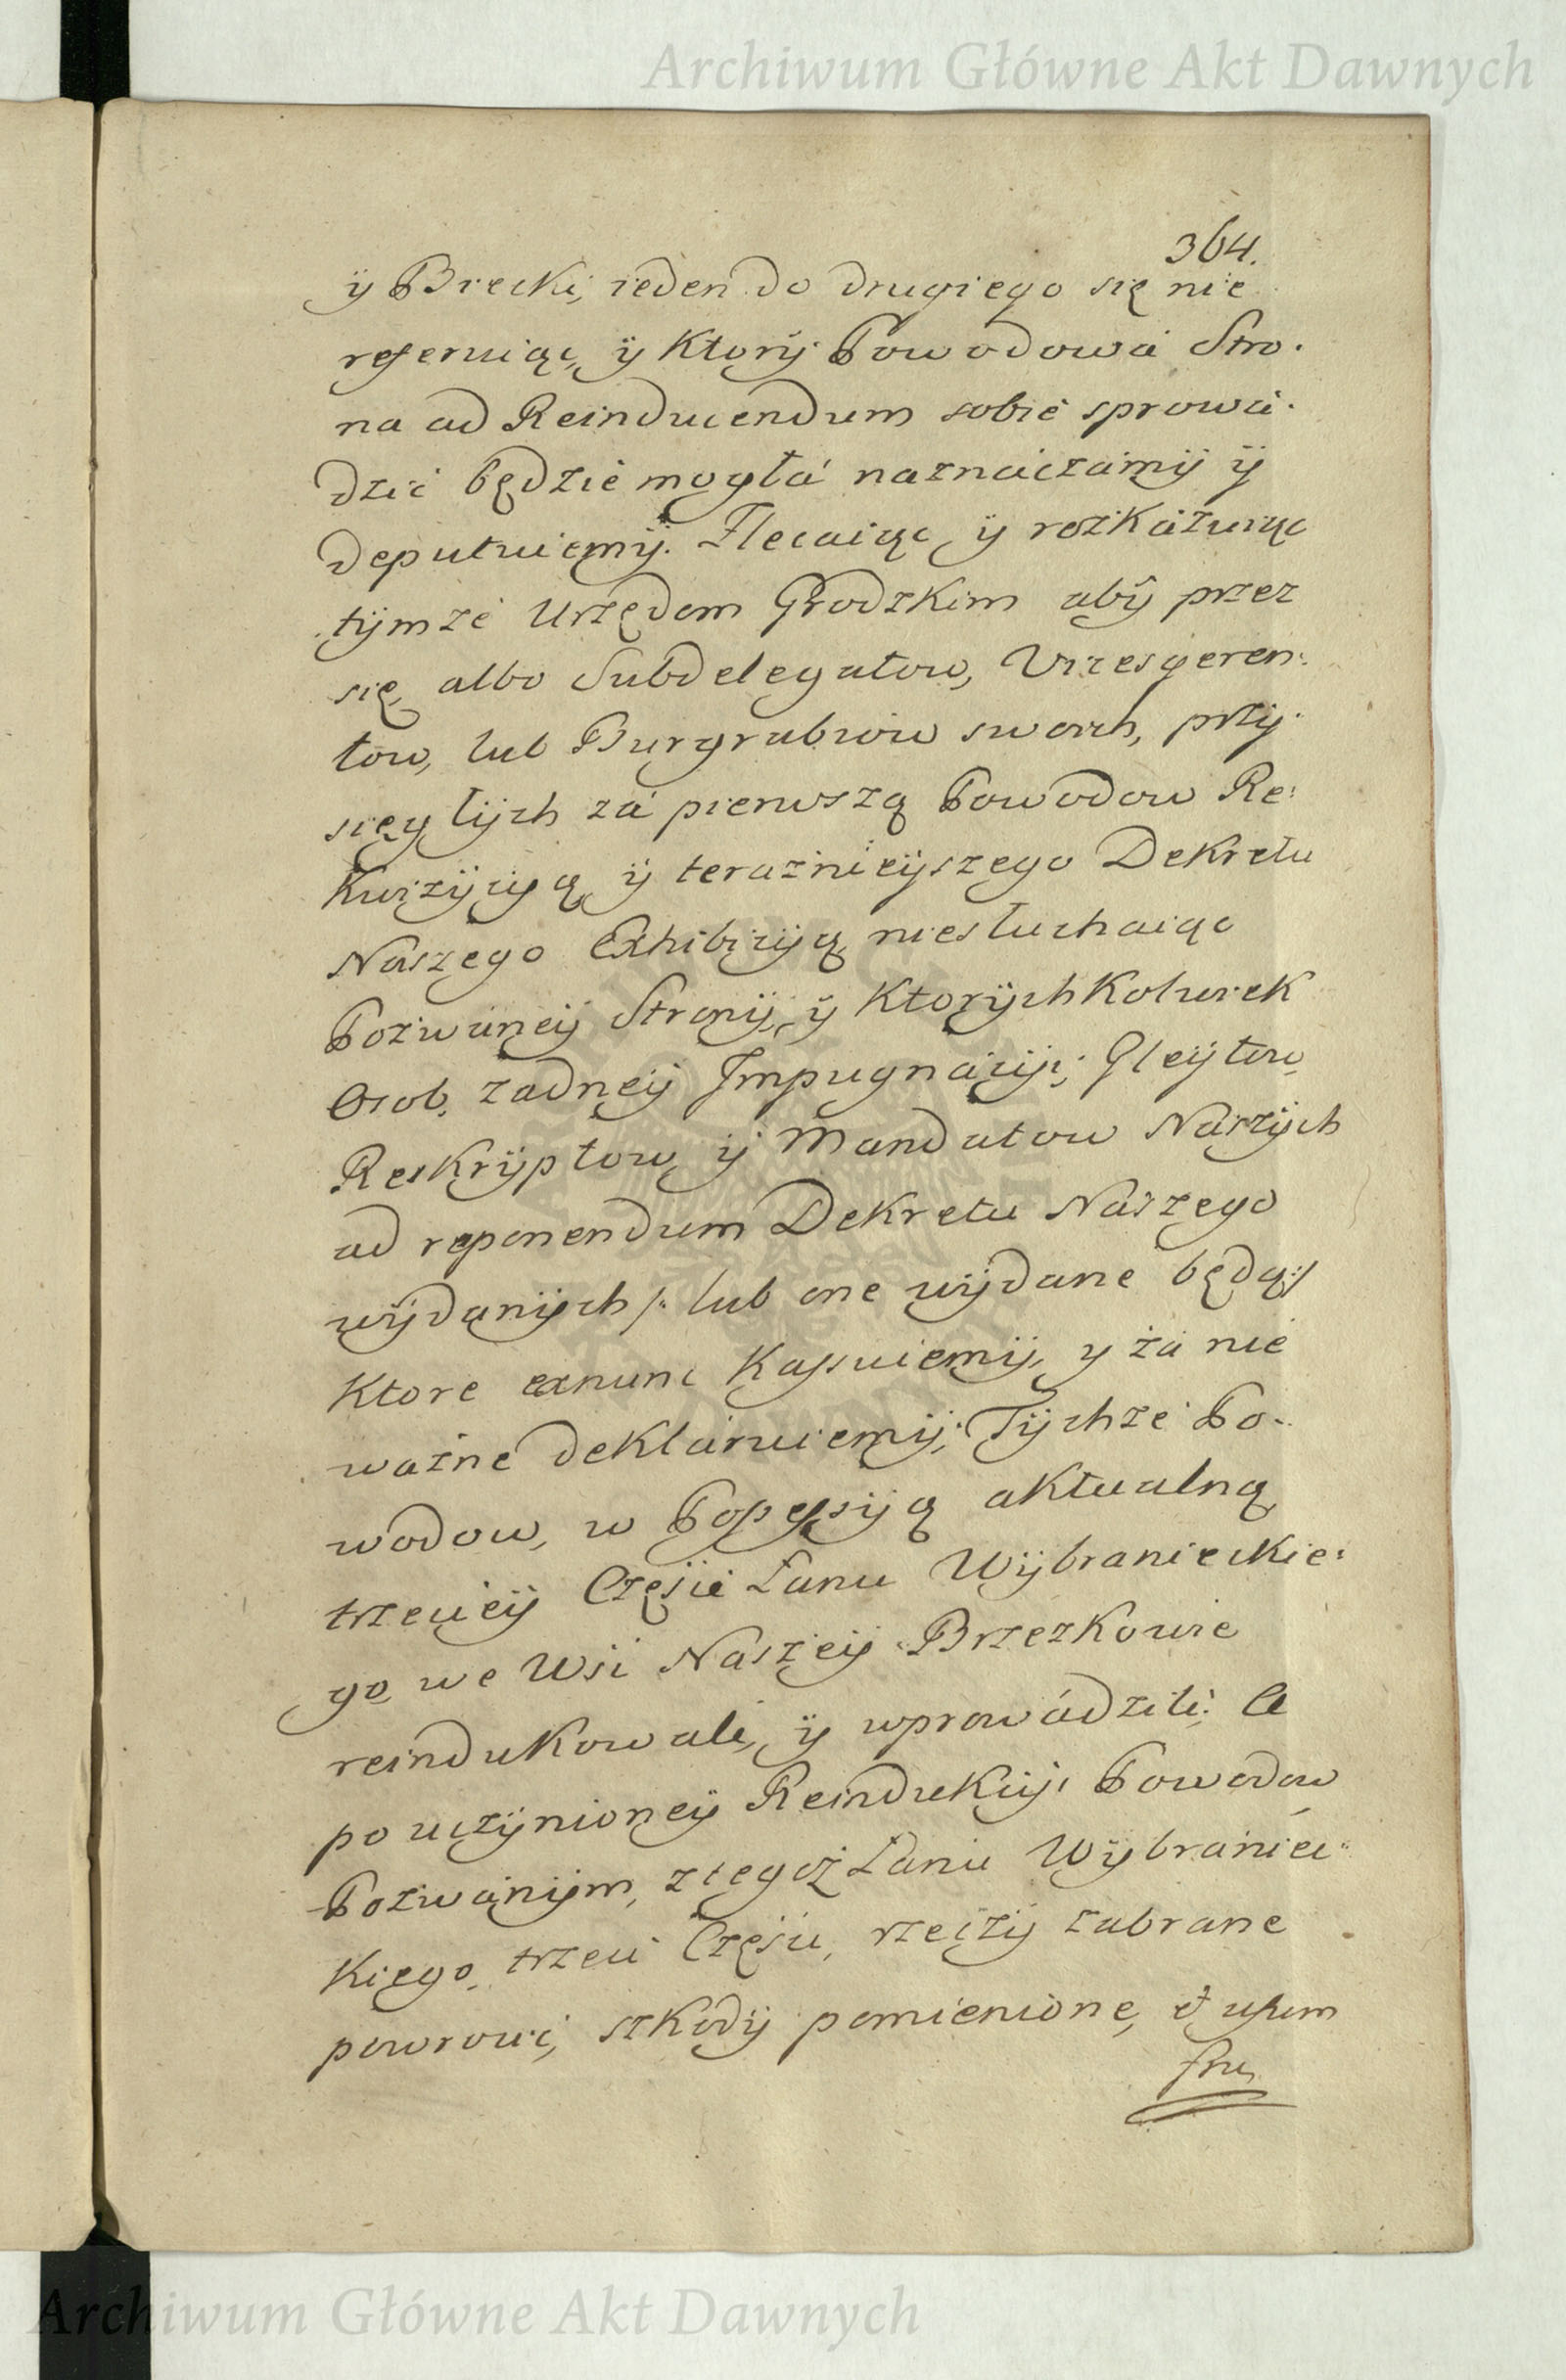 Archiwum Główne Akt Dawnych
364.
ÿ Biecki, ieden do drugiego się nie
referuiąc, ÿ Ktorÿ Powodowa Stro.
na ad Reinducendum sobie sprowa.
dzić będzie mogła naznaczamÿ ÿ
deputuiemÿ. Zlecaiąc ÿ rozkazuiąc
tÿmże Urzędom Grodzkim abÿ przez
się, albo Subdelegatow, Vicesgeren:
tow, lub Burgrabiow swoich, przÿ.
sięgłÿch za pierwszą Powodow Re:
kwizÿcÿą ÿ teraznieÿszego Dekretu
Naszego Exhibicÿą niesłuchaiąc
Pozwaneÿ Stronÿ, ÿ KtorÿchKolwiek
Osob, zadneÿ Impugnacÿi, Gleÿtow,
Reskrÿptow ÿ Mandatow Naszÿch
ad reponendum Dekretu Naszego
wÿdanÿch /: lub one wÿdane będą :/
Ktore exnunc Kassuiemÿ, y za nie
ważne deklaruiemÿ; Tÿchże Po-
wodow, w Possessÿą aktualną
trzecieÿ Częsci Łanu Wÿbranieckie:
go we Wsi Naszeÿ Brzezkowie
reindukowali, ÿ wprowadzili: A
po uczÿnioneÿ Reindukcÿi Powodow
Pozwanÿm, z tegoż Łanu Wÿbraniec"
Kiego, trzeci Częsci, rzeczÿ zabrane
powrocić, szkodÿ pomienione, et usum
fru,
Archiwum Główne Akt Dawnych